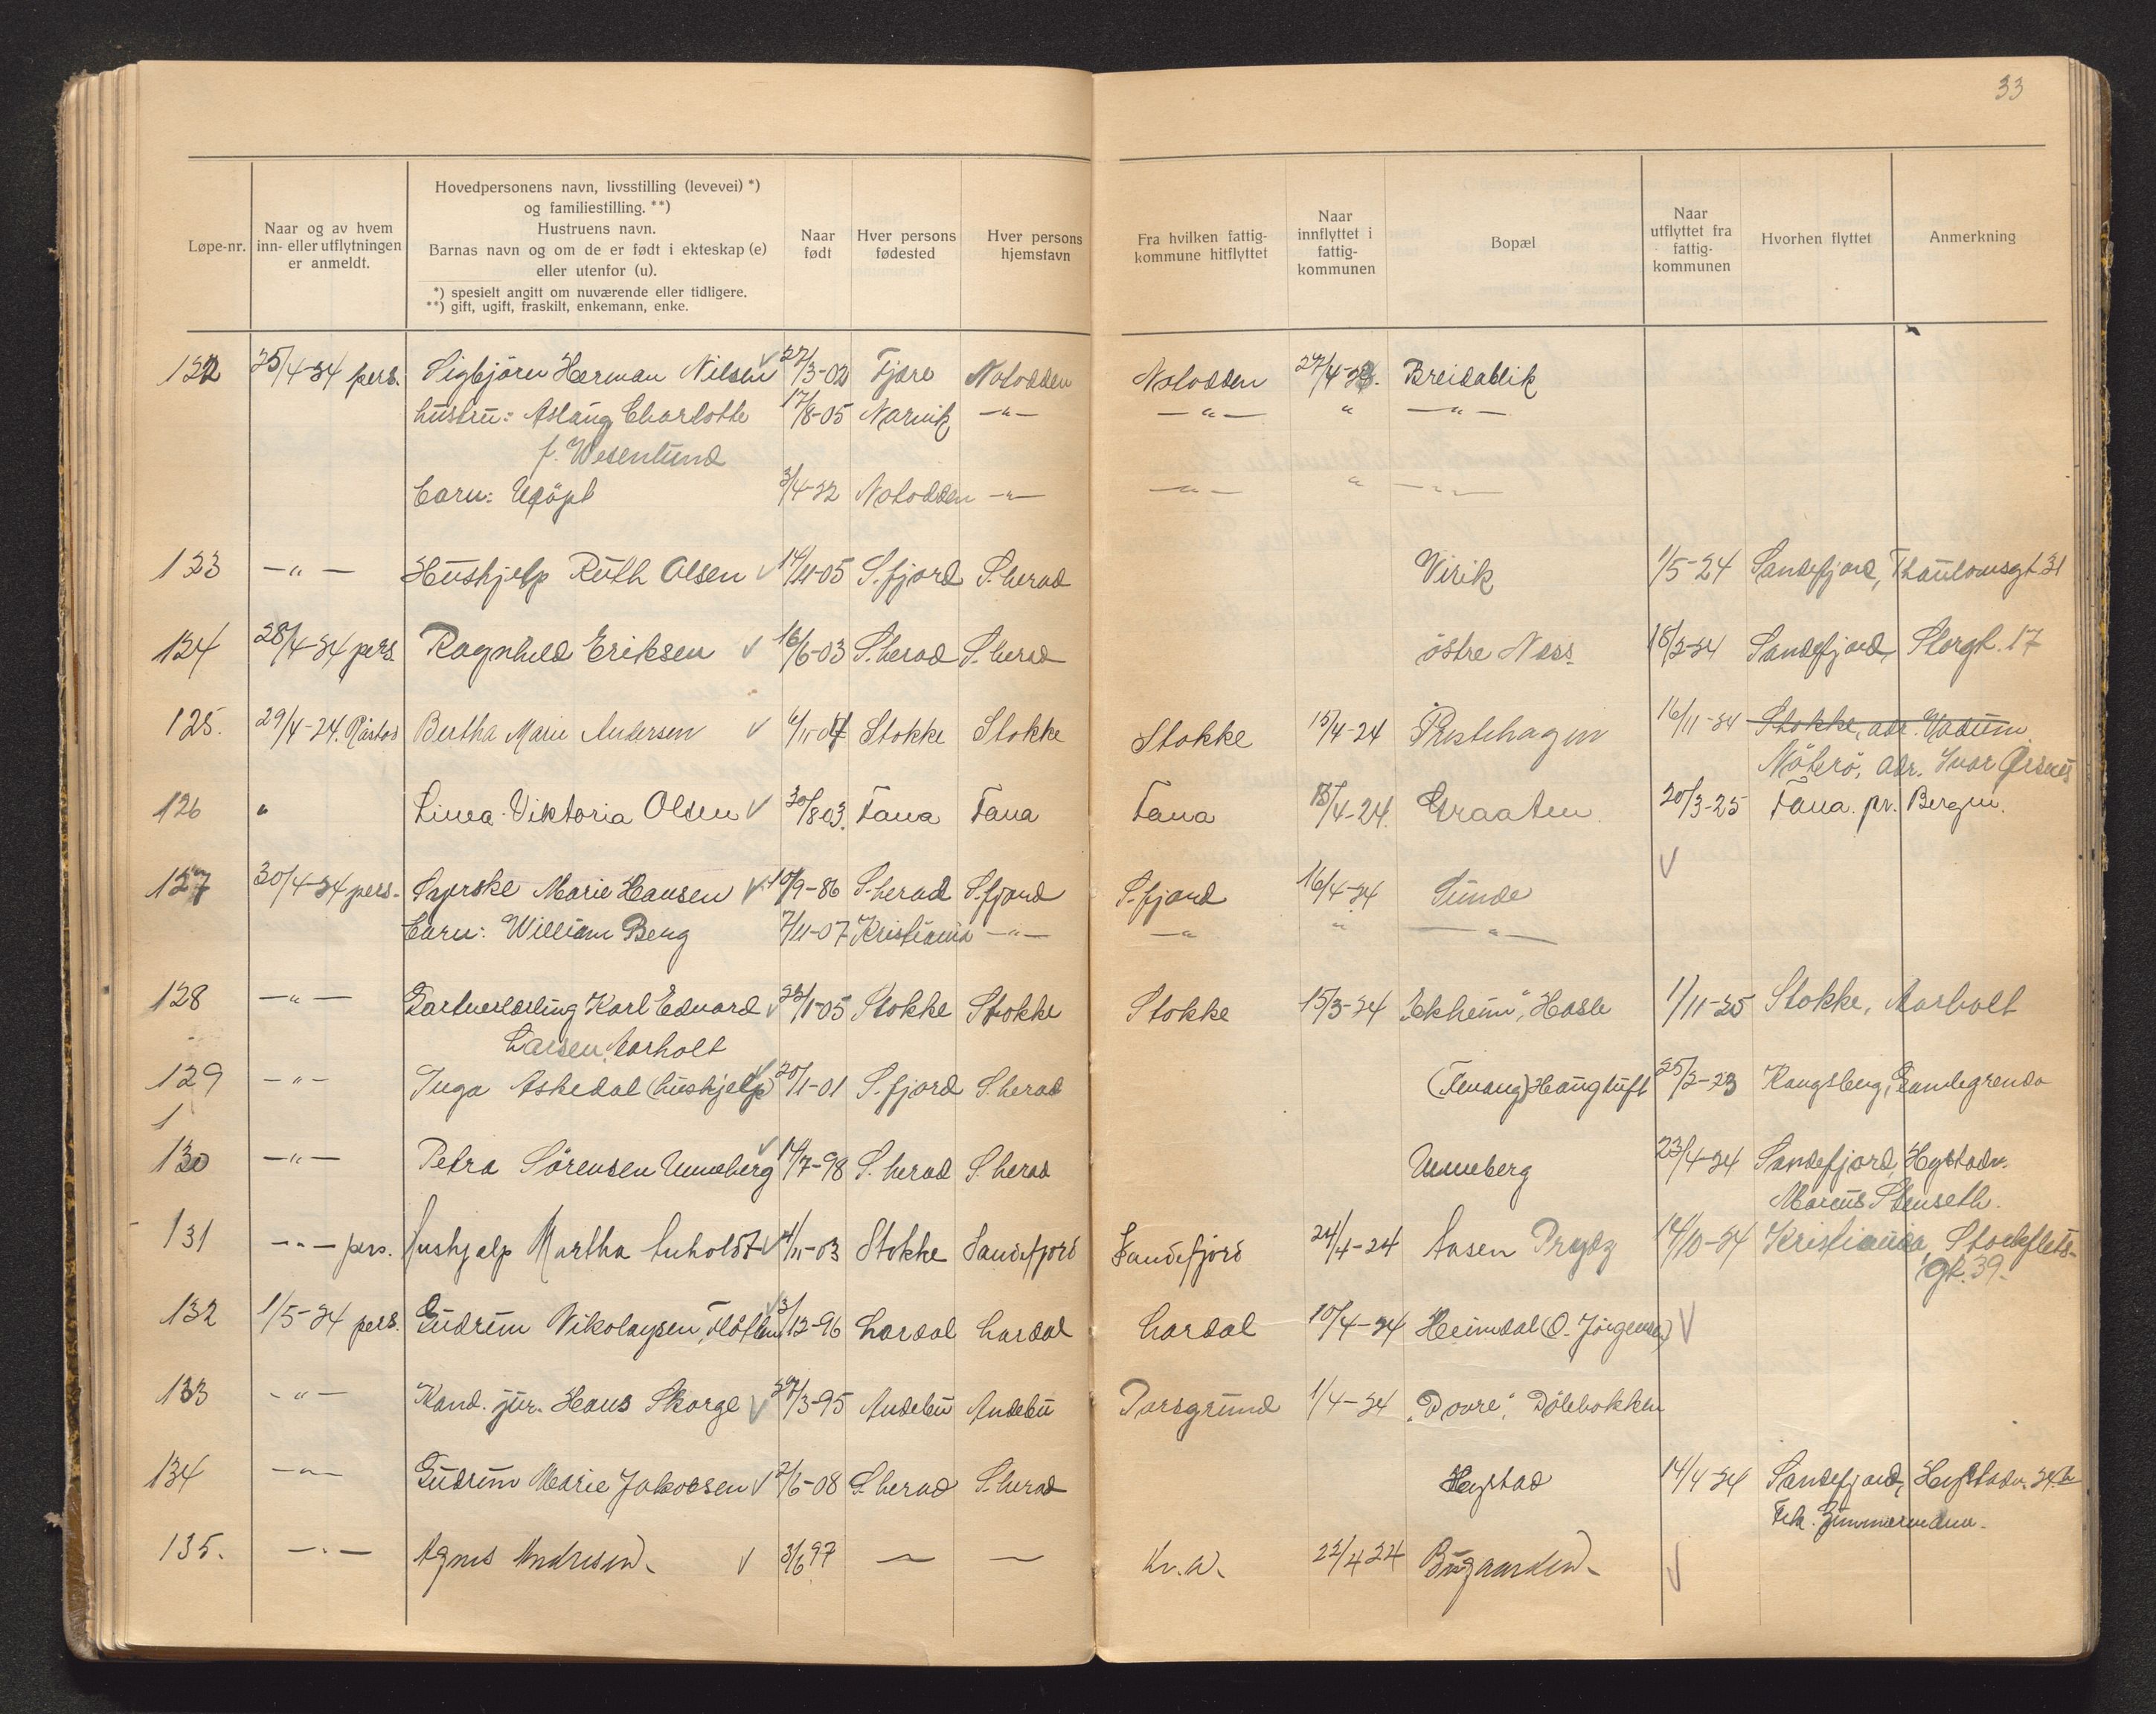 33
Løpe-nr.
Naar og av hvem
inn- eller utflytningen
er anmeldt.
Hovedpersonens navn, livsstilling (levevei) *)
og familiestilling. **)
Hustruens navn.
Barnas navn og om de er født i ekteskap (e)
eller utenfor (u).
*) spesielt angitt om nuværende eller tidligere.
**) gift, ugift, fraskilt, enkemann, enke.
Naar
født
Hver persons
fødested
Hver persons
hjemstavn
Fra hvilken fattig-
kommune hitflyttet
Naar
innflyttet i
fattig-
kommunen
Bopæl
Naar
utflyttet fra
fattig-
kommunen
Hvorhen flyttet
Anmerkning
122 25/4-24 pers. Sigbjörn Herman Nilsen 27/3-02 Fjære Notodden Notodden 27/4-23. Breidablik
hustru: Aslaug Charlotte 17/8-05 Narvik -"- -"- " -"-
f. Wesenlund
barn: Udöpt 3/4-22 Notodden -"- -"- " -"-
123 -"- Hushjelp Ruth Olsen 14/11-05 S.fjord S.herad Virik 1/5-24 Sandefjord, Thaulowsgt. 31
124 28/4-24 pers Ragnhild Eriksen 16/6-03 S.herad S.herad östre Ness 18/2-24 Sandefjord, Storgt. 17
125. 29/4-24. Råstad Bertha Marie Andersen 6/11-07 Stokke Stokke Stokke 15/4-24 Prestehagen 16/11-24 Stokke, adr. Vadum.
Nöterö, adr. Ivar Ørsnes
126 " Linea Viktoria Olsen 30/8 03. Fana Fana Fana 15/4-24. Graaten. 20/3-25 Fana. pr. Bergen.
127 30/4-24 pers. Syerske Marie Hansen 10/9-86 S.herad S.fjord S.fjord 16/4-24 Sunde
barn: William Berg 7/11-07 Kristiania -"- -"- " -"-
128 -"- Gartnerlærling Karl Edvard 22/1-05 Stokke Stokke Stokke 15/3-24 "Ekheim", Hasle 1/11-25 Stokke, Aarholt
Larsen Aarholt
129 -"- Inga Askedal (hushjelp) 20/1-01 S.fjord S.herad (Tenang) Haugtuft 25/2-23 Kongsberg, Gamlegrenda
1
130 -"- Petra Sörensen Unneberg 14/7-98 S.herad S.herad Unneberg 23/4-24 Sandefjord, Hystadv.
Marcus Stenseth.
131 -"- pers. Hushjelp Martha Anholdt 4/11-03 Stokke Sandefjord Sandefjord 24/4-24 Aasen Prydz 14/10-24 Kristiania, Stockflets-
gt. 39.
132 1/5-24 pers. Gudrun Nikolaysen, 3/12-96 Lardal Lardal Lardal 10/4-24 Heimdal (O. Jörgensen)
133 -"- Kand. jur. Hans Skorge 27/3-95 Andebu Andebu Porsgrund 1/4-24 "Dovre", Dölebakken
134 -"- Gudrun Marie Jakobsen 2/6-08 S.herad S.herad Hystad 14/4-24 Sandefjord, Hystadv. 24 b
Frk. Zimmermann.
135. -"- Agnes Andresen. 3/6 97 — — Kr.a. 22/4 24 Bugaarden.